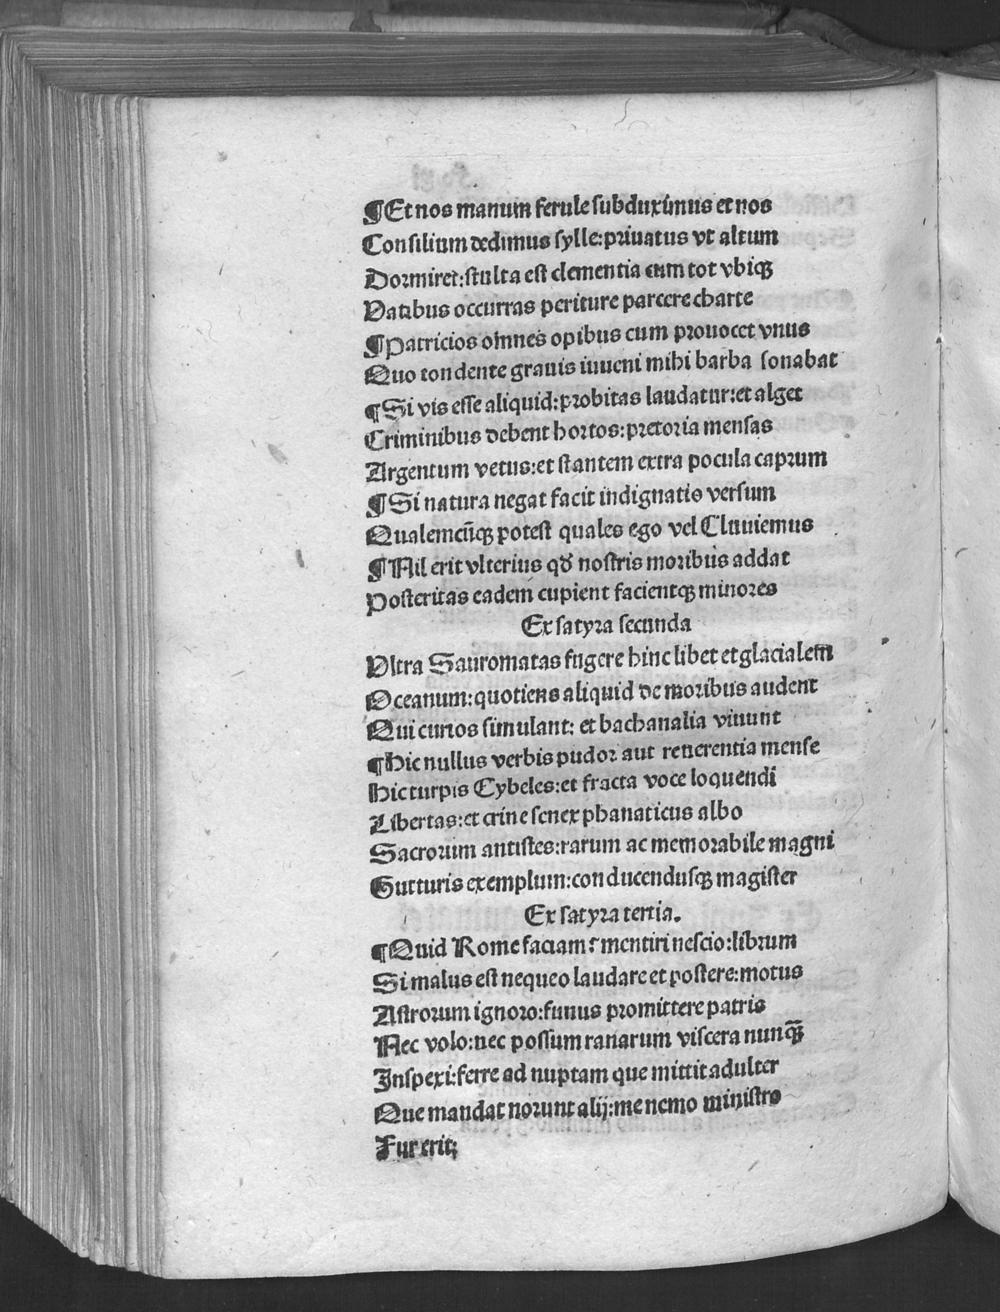 ¶Et nos manum ferule subduximus et nos
Consilium dedimus sylle:priuatus vt altum
Dormiret:stulta est clementia cum tot vbiqꝫ
Vatibus occurras periture parcere charte
¶Patricios omnes opibus cum prouocet vnus
Quo tondente grauis iuueni mihi barba sonabat
¶Si vis esse aliquid:probitas laudatur:et alget
Criminibus debent hortos:pretoria mensas
Argentum vetus:et stantem extra pocula caprum
¶Si natura negat facit indignatio versum
Qualemcūqꝫ potest quales ego vel Cluuiemus
¶Nil erit vlterius qđ nostris moribus addat
Posteritas eadem cupient facientqꝫ minores
Ex satyra secunda
Vltra Sauromatas fugere hinc libet et glacialem
Oceanum:quotiens aliquid de moribus audent
Qui curios simulant: et bachanalia viuunt
¶Hic nullus verbis pudor aut reuerentia mense
Hic turpis Cybeles:et fracta voce loquendi
Libertas:et crine senex phanaticus albo
Sacrorum antistes:rarum ac memorabile magni
Gutturis exemplum:conducendusqꝫ magister
Ex satyra tertia.
¶Quid Rome faciam? mentiri nescio:librum
Si malus est nequeo laudare et postere:motus
Astrorum ignoro:funus promittere patris
Nec volo:nec possum ranarum viscera nunqꝫ̄
Inspexi:ferre ad nuptam que mittit adulter
Que mandat norunt alij:me nemo ministro
Fur erit;